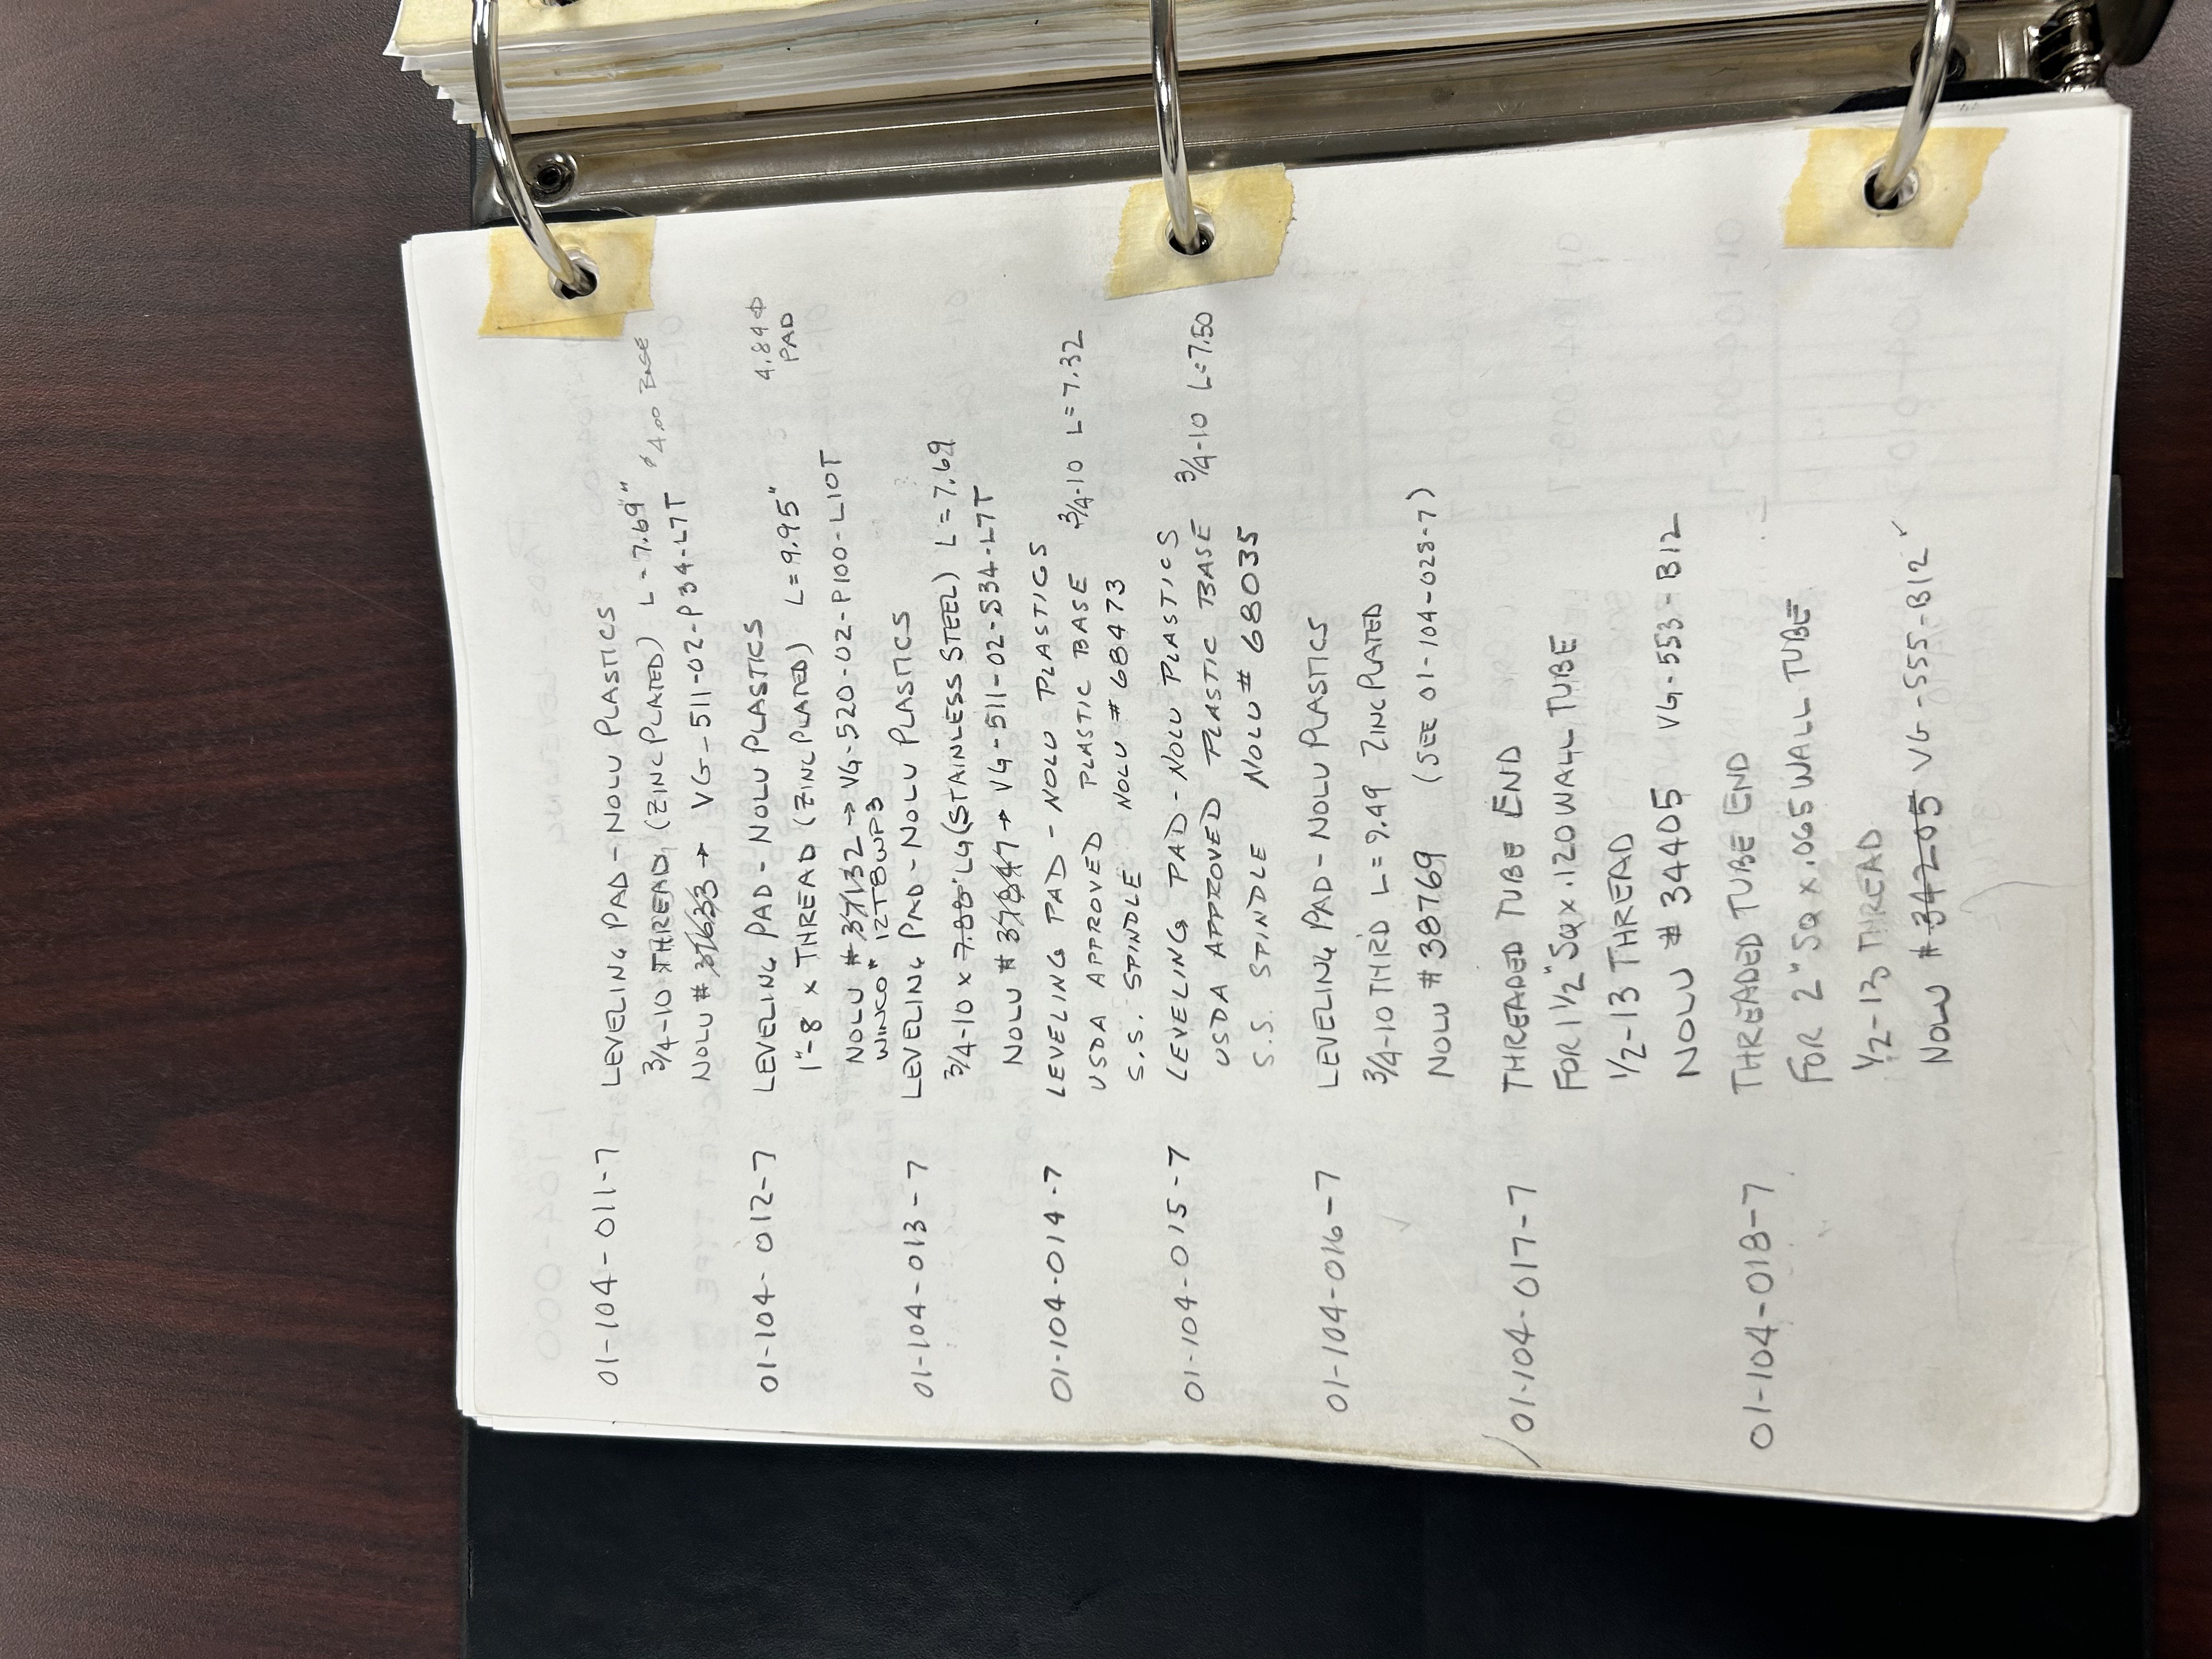 01-104-011-7 LEVELING PAD - NOLU PLASTICS
3/4-10 THREAD (ZINC PLATED) L = 7.69"
NOLU # 37633 → VG-511-02-P34-L7T
01-104-012-7 LEVELING PAD - NOLU PLASTICS 4.84⌀
1"-8 x THREAD (ZINC PLATED) L=9.95" PAD
NOLU # 37132 → VG-520-02-P100-L10T
WINCO # 12T8WP3
01-104-013-7 LEVELING PAD - NOLU PLASTICS
3/4-10 x 7.88" LG (STAINLESS STEEL) L = 7.69
NOLU # 37847 → VG-511-02-S34-L7T
01-104-014-7 LEVELING PAD - NOLU PLASTICS
USDA APPROVED PLASTIC BASE 3/4-10 L=7.32
S.S. SPINDLE NOLU # 68473
01-104-015-7 LEVELING PAD - NOLU PLASTICS
USDA APPROVED PLASTIC BASE 3/4-10 L=7.50
S.S. SPINDLE NOLU # 68035
01-104-016-7 LEVELING PAD - NOLU PLASTICS
3/4-10 THR'D L = 9.49 ZINC PLATED
NOLU # 38769 (SEE 01-104-028-7)
01-104-017-7 THREADED TUBE END
FOR 1 1/2" SQ x .120 WALL TUBE
1/2-13 THREAD
NOLU # 34405 VG-553-B12
01-104-018-7 THREADED TUBE END
FOR 2" SQ x .065 WALL TUBE
1/2-13 THREAD
NOLU # 34205 VG-555-B12 ✓